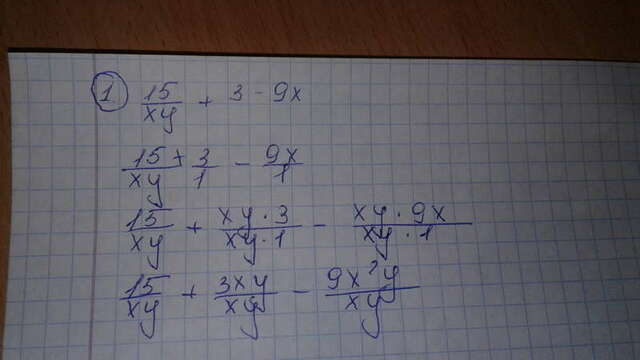 ① 15/xy + 3 - 9x
15/xy + 3/1 - 9x/1
15/xy + xy·3/xy·1 - xy·9x/xy·1
15/xy + 3xy/xy - 9x²y/xy